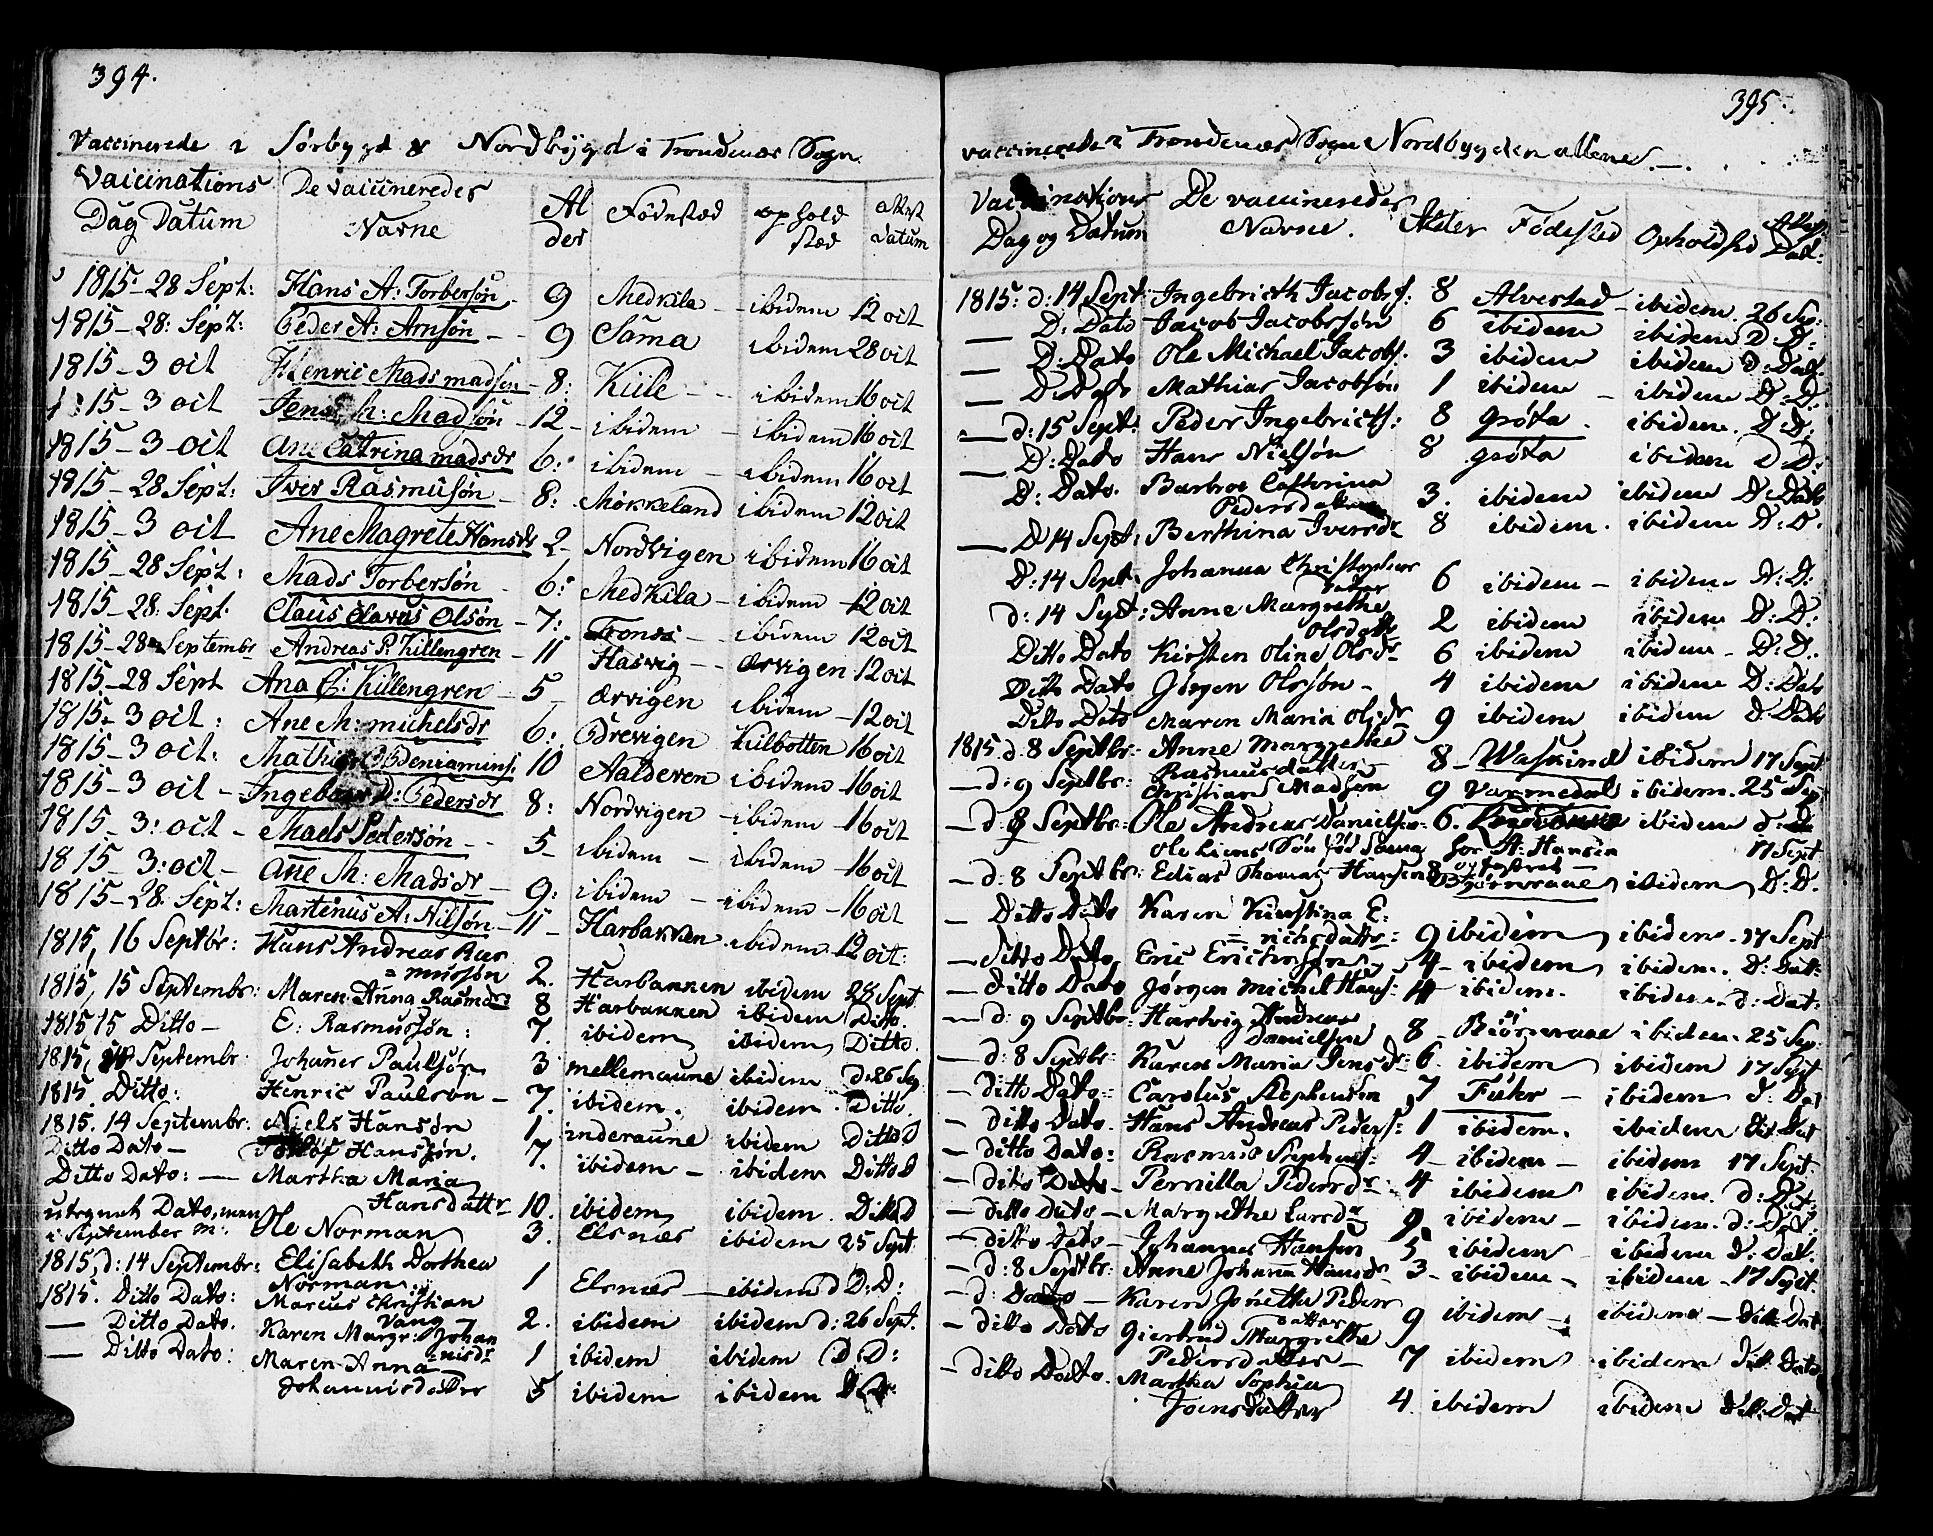 394.
Vaccinerede i Sørbygd & Nordbÿgd i Trondenæs Sogn.
Vaccinations Dag Datum | De vaccineredes Navne | Alder | Fødestæd | ophold stæd | attest datum
1815 – 28 Sept: Hans A: Torbersøn 9 Medkila – ibidem 12 oct
1815 – 28: Sept: Peder A: Arnsøn – 9 Sama ibidem 28 oct
1815 – 3 oct Henric Mads madsen – 8: Kiile – ibidem 16 oct
1815 – 3 oct Jens M: Madsøn – 12 – ibidem – ibidem 16 oct
1815 – 3 oct Ane Catrina madsdr 6: ibidem – ibidem 16 oct
1815 – 28 Sept: Iver Rasmusøn – 8: Møkkeland ibidem 12 oct
1815 – 3 oct Ane Magrete Hansdr 2 – Nordvigen ibidem 16 oct
1815 – 28 Sept: Mads Torbersøn 6: Medkila – ibidem 12 oct
1815 – 28. Sept. Claus Clavus Olsøn – 7: Trones – ibidem 12 oct
1815 – 28 Septembr Andreas P. Killengren – 11 Hasvig – ærvigen 12 oct
1815 – 28 Sept Ana E: Killengren – 5 – ærvigen ibidem – 12 oct
1815 – 3 oct: Ane M: michelsdr 6: Brevigen Kilbotten 16 oct
1815 – 3 oct: Mathias Beniamins: 10 Aalderen ibidem – 16 oct
1815 – 3 oct – Ingeborg D: Pedersdr 8: Nordvigen – ibidem – 16 oct
1815 – 3: oct – Mads Pedersøn – – 5 – ibidem – ibidem – 16 oct
1815 – 3: oct – Ane M: Madsdr – 9: ibidem – ibidem – 16 oct
1815 – 28. Sept: Martinus A: Nilsøn – 11 – Harbakken ibidem 12 oct:
1815, 16 Septbr: Hans Andreas Ras
= mussøn 2. Harbakken ibidem 28 Sept
1815, 15 Septembr: Maren Anna Rasmdr: 8 Harbakken ibidem Ditto.
1815 15 Ditto – E: Rasmussøn: 7. ibidem ibidem Ditto.
1815, Septembr: Johanes Paulsøn 3 mellemaune ibidem d: 26 Sep
1815. Ditto: Henric Paulsøn – 7. ibidem. ibidem. Ditto.
1815. 14 Septembr: Niels Hansøn 1. inderaune ibidem Ditto D
Ditto Dato – Tollof Hanssøn. 7. ibidem – ibidem Ditto D
Ditto Dato: – Martha Maria
Hansdattr 10. ibidem ibidem. Ditto D
utegnet Dato, men
i September m: Ole Norman 3. Elsnæs ibidem 25 Sept
1815, d: 14 Septembr: Elisabeth Dorthea
Norman 1 Elsnæs – ibidem d D: D:
1815. Ditto Dato: Marcus Christian
Vang – 2. ibidem ibidem d: 26 Sept.
– Ditto Dato. Karen Margr: Johan
nisdr 1 ibidem ibidem D D:
– Ditto Dato: Maren Anna
Johannisdatter 5 ibidem ibidem D D:
395.
vaccinerede i Trondenæs Sogn Nordbygden allene. –.
Vaccinations Dag og Datum | De vaccineredes Navne. | Alder | Fødested | Opholdsted | Attest Dat:
1815: d: 14 Sept: Ingebricth Jacobs: 8 Alvestad – ibidem. 26 Sep:
– D: Dato Jacob Jacobssøn 6 ibidem ibidem D D:
– D: Dato Ole Michael Jacobs. 3 ibidem ibidem D: Dat.
– D Dato Mathias Jacobsøn 1 ibidem – ibidem D: D:
– d: 15 Sept: Peder Ingebricts: 8 grøta. ibidem. D: D:
– D: Dato Hans Nielsøn 8 grøta ibidem D D:
D: Dato. Barbroe Cathrina
Pedersdatter 3. ibidem ibidem D: Dato
– D 14 Sept: Berthina Iversdr 8 ibidem. ibidem D: D.
D: 14 Sept: Johanna Christopher
datter 6 ibidem – ibidem D: D:
d: 14 Sept: Anne Margrethe
Olsdattr 2 ibidem ibidem D: D:
Ditto Dato Kirsten Oline Olsdr 6 ibidem ibidem – D: D:
Ditto Dato Jørgen Olssøn – 4 ibidem ibidem D: Dato
Ditto Dato Maren Maria Olsdr 9 ibidem ibidem D: Dato
1815 d: 8 Septbr: Anne Margrethe
Rasmusdatter 8 – Waskind ibidem 17 Sept
– d: 9 Septbr: Christian Madsøn 9 Varmedal ibidem. 25 Sep
– d: 9 Septbr: Ole Andreas Danielsen: 6. ibidem d: d
Ole Liens Søn fød Sama hos H: Hansen 17 Sept
– d: 8 Septbr: Edias Thomas Hansen 8 Biørnraae ibidem D: D.
– Ditto Dato Karen Kierstina E:
= richsdattr: 9 ibidem ibidem – 17 Sept
– Ditto Dato Eric Erichssøn 4 – ibidem ibidem. D: Dat:
– ditto Dato Jørgen Michel Hans: 4 ibidem. ibidem. d: Dat:
– d: 9 Septbr: Hartvig Andreas
Danielsen 8 – Biörnraae ibidem 25 Sep:
– d: 8 Septbr: Karen Maria Jensdr: 6. ibidem ibidem 17 Sept
– ditto Dato: Carolus Stephensøn 7 Fukr – ibidem d: Dat
– ditto Dato. Hans Andreas Peders: 1 ibidem. ibidem Dit Dat
– ditto Dato: Rasmus Stephens: 4 – ibidem – ibidem 17 Sept
– ditto Dato – Pernilla Pedersdr: 4 ibidem ibidem. d: Dat:
– ditto Dato – Margrethe Larsdr 9. ibidem – ibidem. d: Dat.
– ditto Dato – Johannes Hansen 5 ibidem – ibidem d: Dat.
– d: 8 Septbr: Anne Johanna Hansdr 3 – ibidem – ibidem – 17 Sept
– d: Dato – Karen Jonetta Peders
datter 9 ibidem – ibidem – Ditt Dat
– ditto Dato Giertrud Margrethe
Pedersdatter – 7 ibidem ibidem Dit: Dato
– ditto Dato. Martha Sophia
Joensdatter 4. ibidem ibidem Dit: Dat